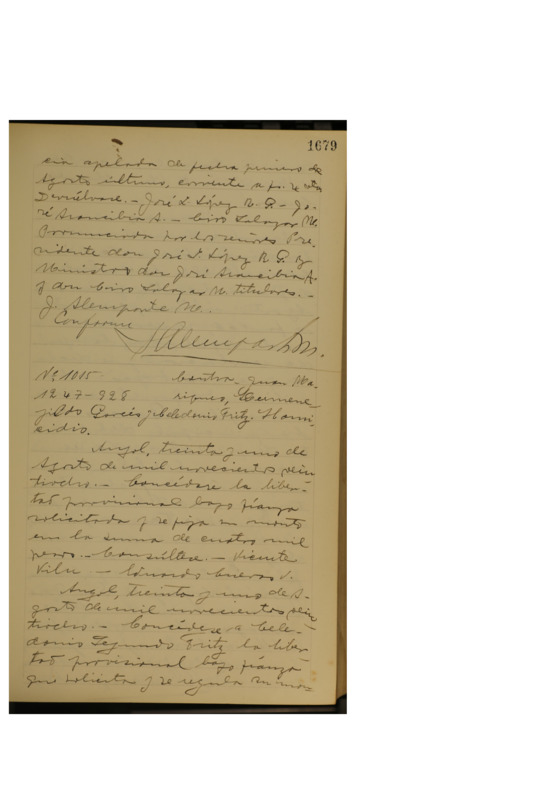 1679
cia apelada de fecha primero de
Agosto último, corriente a fs.
Devuélvase. - José L. López R. P. - Jo-
sé Arancibia A. - Ciro Salazar M.
Pronunciada por los señores Pre-
sidente don José L. López R. P. y
Ministros don José Arancibia A.
y don Ciro Salazar M. titulares. -
J. Alemparte M.
Conforme
J Alemparte M.
Nº 1015
Contra Juan Ma-
1247-928
riqueo, Hermene-
jildo Garcés y Celedonio Fritz. Homi-
cidio.
Angol, treinta y uno de
Agosto de mil novecientos vein-
tiocho. - Concédese la liber-
tad provisional bajo fianza
solicitada y se fija su monto
en la suma de cuatro mil
pesos. - Consúltese. - Vicente
Vilu - Eduardo Cuevas V.
Angol, treinta y uno de A-
gosto de mil novecientos vein-
tiocho. - Concédese a Cele-
donio Segundo Fritz la liber-
tad provisional bajo fianza
que solicita y se regula su mon-